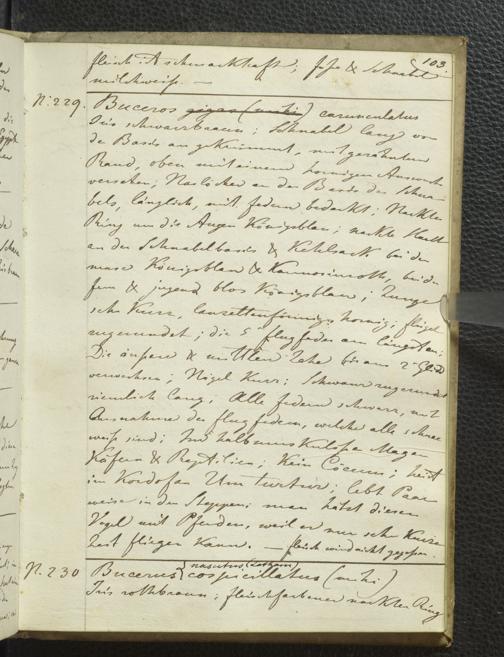 103
fleisch schmackhaft; Füße & Schnabel
milchweiß. —
N. 229. Buceros gigas (mihi) carunculatus
Iris schwarzbraun; Schnabel lang von
der Basis an gekrümmt, mit gezähntem
Rand, oben mit einem hornigen Auswuchs
versehen; Naslöcher an der Basis des Schna-
bels, länglich, mit federn bedeckt; Nackter
Ring um die Augen Königsblau; nackte Haut
an der Schnabelbasis & Kehlsack bei den
Königsblau & Karmosinroth, bei den
& jugend blos Königsblau; Zunge
sehr Kurz, lanzettenförmig, hornig; flügel
zugerundet; die 5 flugfeder am längsten;
Die äußere & mittlere Zehe bis ans 2 Glied
verwachsen; Nägel Kurz; Schwanz zugerundet
ziemlich lang; Alle federn schwarz, mit
Ausnahme der flugfedern, welche alle schnee
weiß sind; Im Magen
Käfern & Reptilien; Kein Coecum; heißt
in Kordofan Um turtur; lebt Paar
weise in den Steppen; man hetzt diesen
Vogel mit Pferden, weil er nur sehr Kurze
Zeit fliegen Kann. — fleisch wird nicht gegessen.
nasutus (Latham)
N. 230 Buceros cospicillatus (mihi)
Iris rothbraun; fleischfarbener nackter Ring